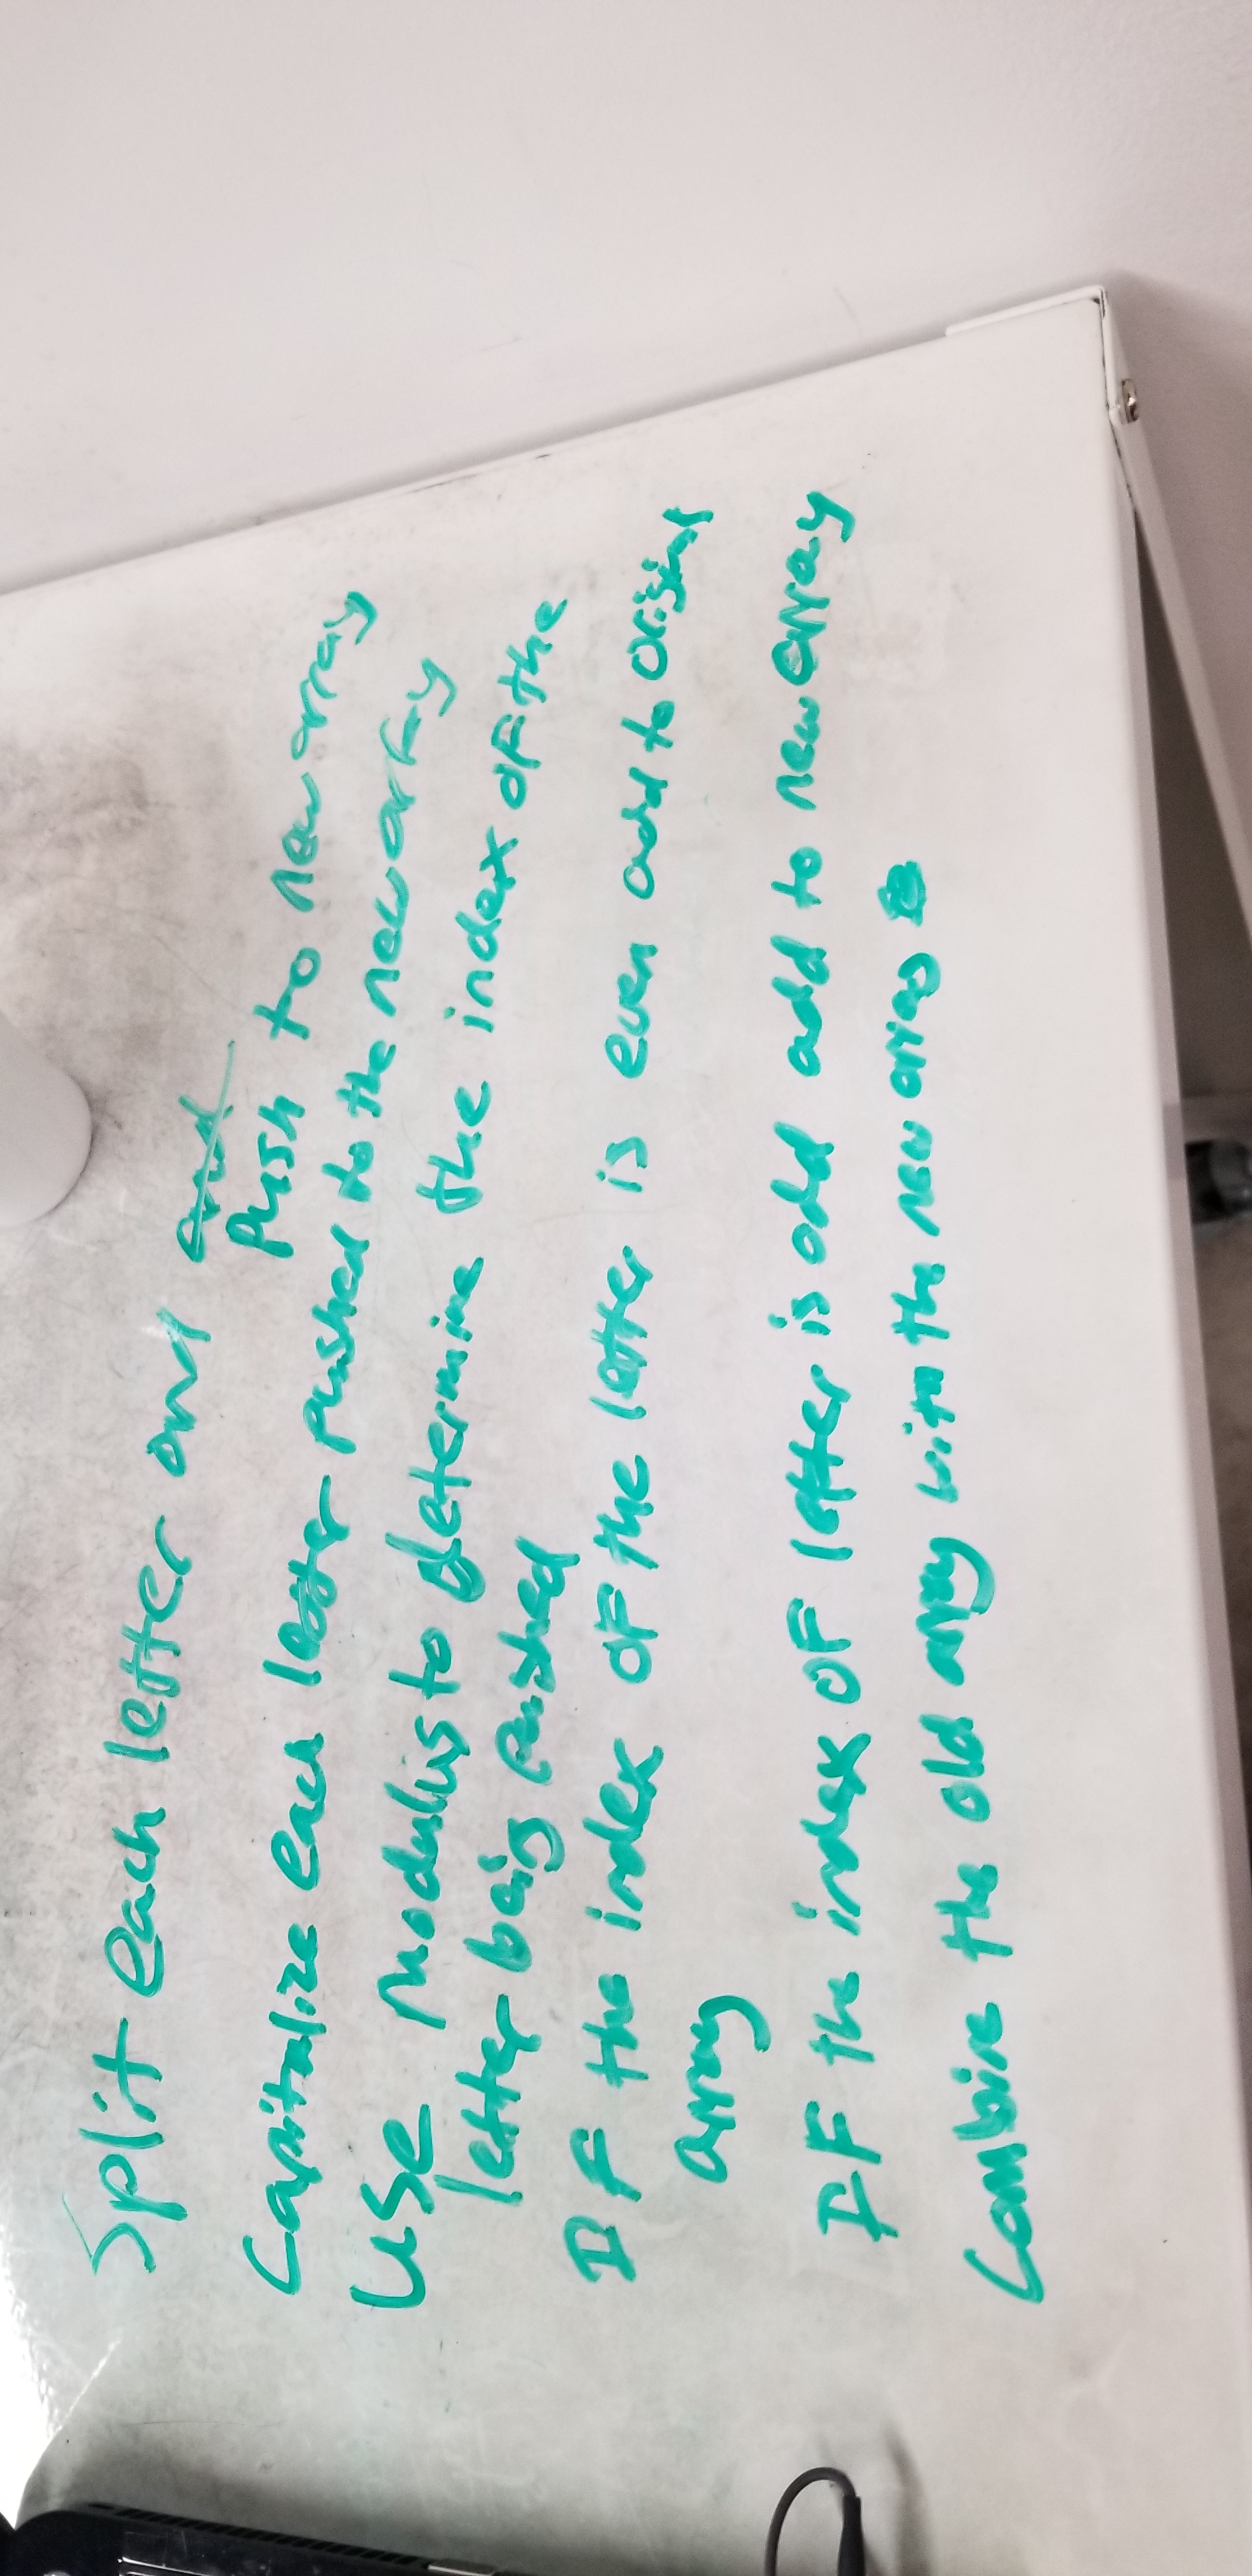 Split each letter and and
push to new array
Capitalize each letter pushed to the new array
Use Modulus to determine the index of the
letter being pushed
IF the index OF the letter is even add to original
array
IF the index OF letter is odd add to new array
Combine the old array with the new array